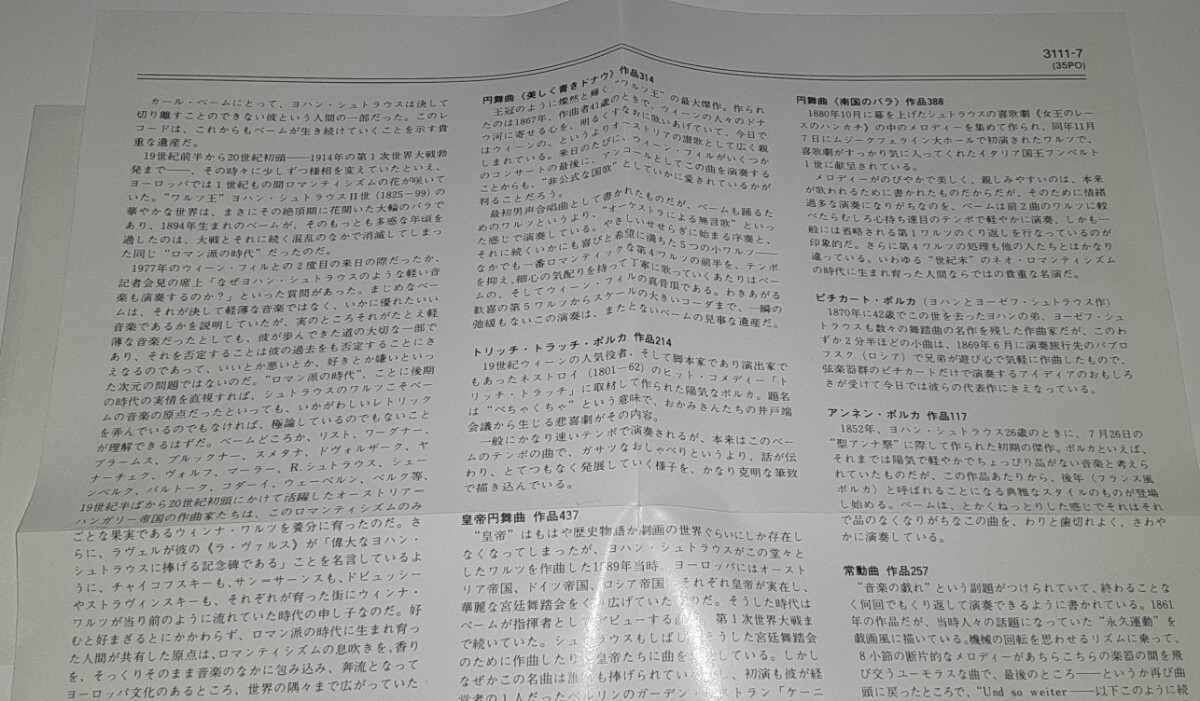 3111-7
(35PO)
カール・ベームにとって、ヨハン・シュトラウスは決して
切り離すことのできない彼という人間の一部だった。このレ
コードは、これからもベームが生き続けていくことを示す貴
重な遺産だ。
19世紀前半から20世紀初頭——1914年の第1次世界大戦勃
発まで——、その時々に少しずつ様相を変えていたといえ、
ヨーロッパでは1世紀もの間ロマンティシズムの花が咲いて
いた。“ワルツ王”ヨハン・シュトラウスII世(1825〜99)の
華やかな世界は、まさにその絶頂期に花開いた大輪のバラで
あり、1894年生まれのベームが、そのもっとも多感な年頃を
過したのは、大戦とそれに続く混乱のなかで消滅してしまっ
た同じ“ロマン派の時代”だったのだ。
1977年のウィーン・フィルとの2度目の来日の際だったか、
記者会見の席上「なぜヨハン・シュトラウスのような軽い音
楽も演奏するのか?」といった質問があった。まじめなベー
ムは、それが決して軽薄な音楽ではなく、いかに優れたいい
音楽であるかを説明していたが、実のところそれがたとえ軽
薄な音楽だったとしても、彼が歩んできた道の大切な一部で
あり、それを否定することは彼の過去をも否定することにさ
えなるのであって、いいとか悪いとか、好きとか嫌いといっ
た次元の問題ではないのだ。“ロマン派の時代”、ことに後期
の時代の実情を直視すれば、シュトラウスのワルツこそベー
ムの音楽の原点だったといっても、いかがわしいレトリック
を弄んでいるのでもなければ、極論しているのでもないこと
が理解できるはずだ。ベームどころか、リスト、ワーグナー、
ブラームス、ブルックナー、スメタナ、ドヴォルザーク、ヤ
ナーチェク、ヴォルフ、マーラー、R.シュトラウス、シェー
ンベルク、バルトーク、コダーイ、ウェーベルン、ベルク等、
19世紀半ばから20世紀初頭にかけて活躍したオーストリアー
ハンガリー帝国の作曲家たちは、このロマンティシズムのみ
ごとな果実であるウィンナ・ワルツを養分に育ったのだ。さ
らに、ラヴェルが彼の《ラ・ヴァルス》が「偉大なヨハン・
シュトラウスに捧げる記念碑である」ことを名言しているよ
うに、チャイコフスキーも、サン＝サーンスも、ドビュッシー
やストラヴィンスキーも、それぞれが育った街にウィンナ・
ワルツが当り前のように流れていた時代の申し子なのだ。好
むと好まざるとにかかわらず、ロマン派の時代に生まれ育っ
た人間が共有した原点は、ロマンティシズムの息吹きを、香り
を、そっくりそのまま音楽のなかに包み込み、奔流となって
ヨーロッパ文化のあるところ、世界の隅々まで広がっていた
円舞曲《美しく青きドナウ》作品314
王冠のように燦然と輝く“ワルツ王”の最大傑作。作られ
たのは1867年、作曲者41歳のときで、ウィーンの人々のドナ
ウ河に寄せる心を、明るくすなおに歌いあげていて、今日で
はウィーンの、というよりオーストリアの讃歌として広く親
しまれている。来日のたびに、ウィーン・フィルがいくつか
のコンサートの最後に、アンコールとしてこの曲を演奏する
ことからも、“非公式な国歌”としていかに愛されているかが
判ることだろう。
最初男声合唱曲として書かれたものだが、ベームも踊るた
めのワルツというより、“オーケストラによる無言歌”といっ
た感じで演奏している。やさしいせせらぎに始まる序奏と、
それに続くいかにも喜びと希望に満ちた5つの小ワルツ——
なかでも一番ロマンティックな第4ワルツの前半を、テンポ
を抑え、細心の気配りを持って丁寧に歌っていくあたりはベー
ムの、そしてウィーン・フィルの真骨頂である。わきあがる
歓喜の第5ワルツからスケールの大きいコーダまで、一瞬の
弛緩もないこの演奏は、またとないベームの見事な遺産だ。
トリッチ・トラッチ・ポルカ 作品214
19世紀ウィーンの人気役者、そして脚本家であり演出家で
もあったネストロイ(1801〜62)のヒット・コメディー「ト
リッチ・トラッチ」に取材して作られた陽気なポルカ。題名
は“ぺちゃくちゃ”という意味で、おかみさんたちの井戸端
会議から生じる悲喜劇がその内容。
一般にかなり速いテンポで演奏されるが、本来はこのベー
ムのテンポの曲で、ガサツなおしゃべりというより、話が伝
わり、とてつもなく発展していく様子を、かなり克明な筆致
で描き込んでいる。
皇帝円舞曲 作品437
“皇帝”はもはや歴史物語か劇画の世界ぐらいにしか存在し
なくなってしまったが、ヨハン・シュトラウスがこの堂々と
したワルツを作曲した1889年当時、ヨーロッパにはオースト
リア帝国、ドイツ帝国、ロシア帝国、それぞれ皇帝が実在し、
華麗な宮廷舞踏会をくり広げていたのだ。そうした時代は
ベームが指揮者としてデビューする 第1次世界大戦ま
で続いていた。シュトラウスもしばしばそうした宮廷舞踏会
のために作曲したり、皇帝たちに曲を している。しかし
なぜかこの名曲は誰にも捧げられてい 初演も彼が経
営者の1人だったベルリンのガーデン・レストラン「ケーニ
円舞曲《南国のバラ》作品388
1880年10月に幕を上げたシュトラウスの喜歌劇《女王のレー
スのハンカチ》の中のメロディーを集めて作られ、同年11月
7日にムジークフェライン大ホールで初演されたワルツで、
喜歌劇がすっかり気に入ってくれたイタリア国王フンベルト
1世に献呈されている。
メロディーがのびやかで美しく、親しみやすいのは、本来
が歌われるために書かれたものだからだが、そのために情緒
過多な演奏になりがちなのを、ベームは前2曲のワルツに較
べたらむしろ心持ち速目のテンポで軽やかに演奏、しかも一
般には省略される第1ワルツのくり返しを行なっているのが
印象的だ。さらに第4ワルツの処理も他の人たちとはかなり
違っている。いわゆる“世紀末”のネオ・ロマンティシズム
の時代に生まれ育った人間ならではの貴重な名演だ。
ピチカート・ポルカ(ヨハンとヨーゼフ・シュトラウス作)
1870年に42歳でこの世を去ったヨハンの弟、ヨーゼフ・シュ
トラウスも数々の舞踏曲の名作を残した作曲家だが、このわ
ずか2分半ほどの小曲は、1869年6月に演奏旅行先のパブロ
フスク(ロシア)で兄弟が遊び心で気軽に作曲したもので、
弦楽器群のピチカートだけで演奏するアイディアのおもしろ
さが受けて今日では彼らの代表作にさえなっている。
アンネン・ポルカ 作品117
1852年、ヨハン・シュトラウス26歳のときに、7月26日の
“聖アンナ祭”に際して作られた初期の傑作。ポルカといえば、
それまでは陽気で軽やかでちょっぴり品がない音楽と考えら
れていたものだが、この作品あたりから、後年〈フランス風
ポルカ〉と呼ばれることになる典雅なスタイルのものが登場
し始める。ベームは、とかくねっとりした感じでそれはそれ
で品のなくなりがちなこの曲を、わりと歯切れよく、さわや
かに演奏している。
常動曲 作品257
“音楽の戯れ”という副題がつけられていて、終わることな
く何回でもくり返して演奏できるように書かれている。1861
年の作品だが、当時人々の話題になっていた“永久運動”を
戯画風に描いている。機械の回転を思わせるリズムに乗って、
8小節の断片的なメロディーがあちらこちらの楽器の間を飛
び交うユーモラスな曲で、最後のところ——というか再び曲
頭に戻ったところで、“Und so weiter——以下このように続